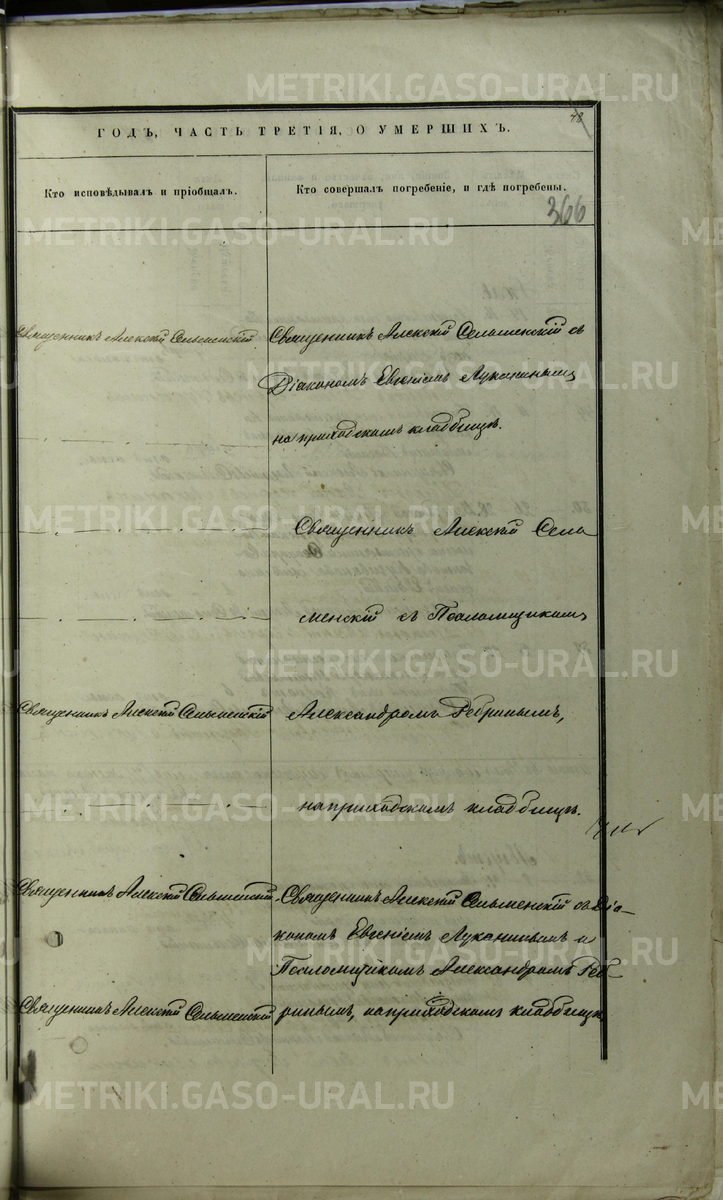 48
ГОДЪ, ЧАСТЬ ТРЕТІЯ, О УМЕРШИХЪ.
Кто исповѣдывалъ и пріобщалъ.
Кто совершалъ погребеніе, и гдѣ погребены.
366
Священникъ Алексѣй Сельменскій
Священникъ Алексѣй Сельменскій съ
Діакономъ Евгеніемъ Луканинымъ
на приходскомъ кладбищѣ.
Священникъ Алексѣй Сель
менскій съ Псаломщикомъ
Священникъ Алексѣй Сельменскій
Александромъ Ребринымъ,
на приходскомъ кладбищѣ.
Священникъ Алексѣй Сельменскій
Священникъ Алексѣй Сельменскій съ Діа-
кономъ Евгеніемъ Луканинымъ и
Псаломщикомъ Александромъ Реб
Священникъ Алексѣй Сельменскій
ринымъ, на приходскомъ кладбищѣ.
METRIKI.GASO-URAL.RU